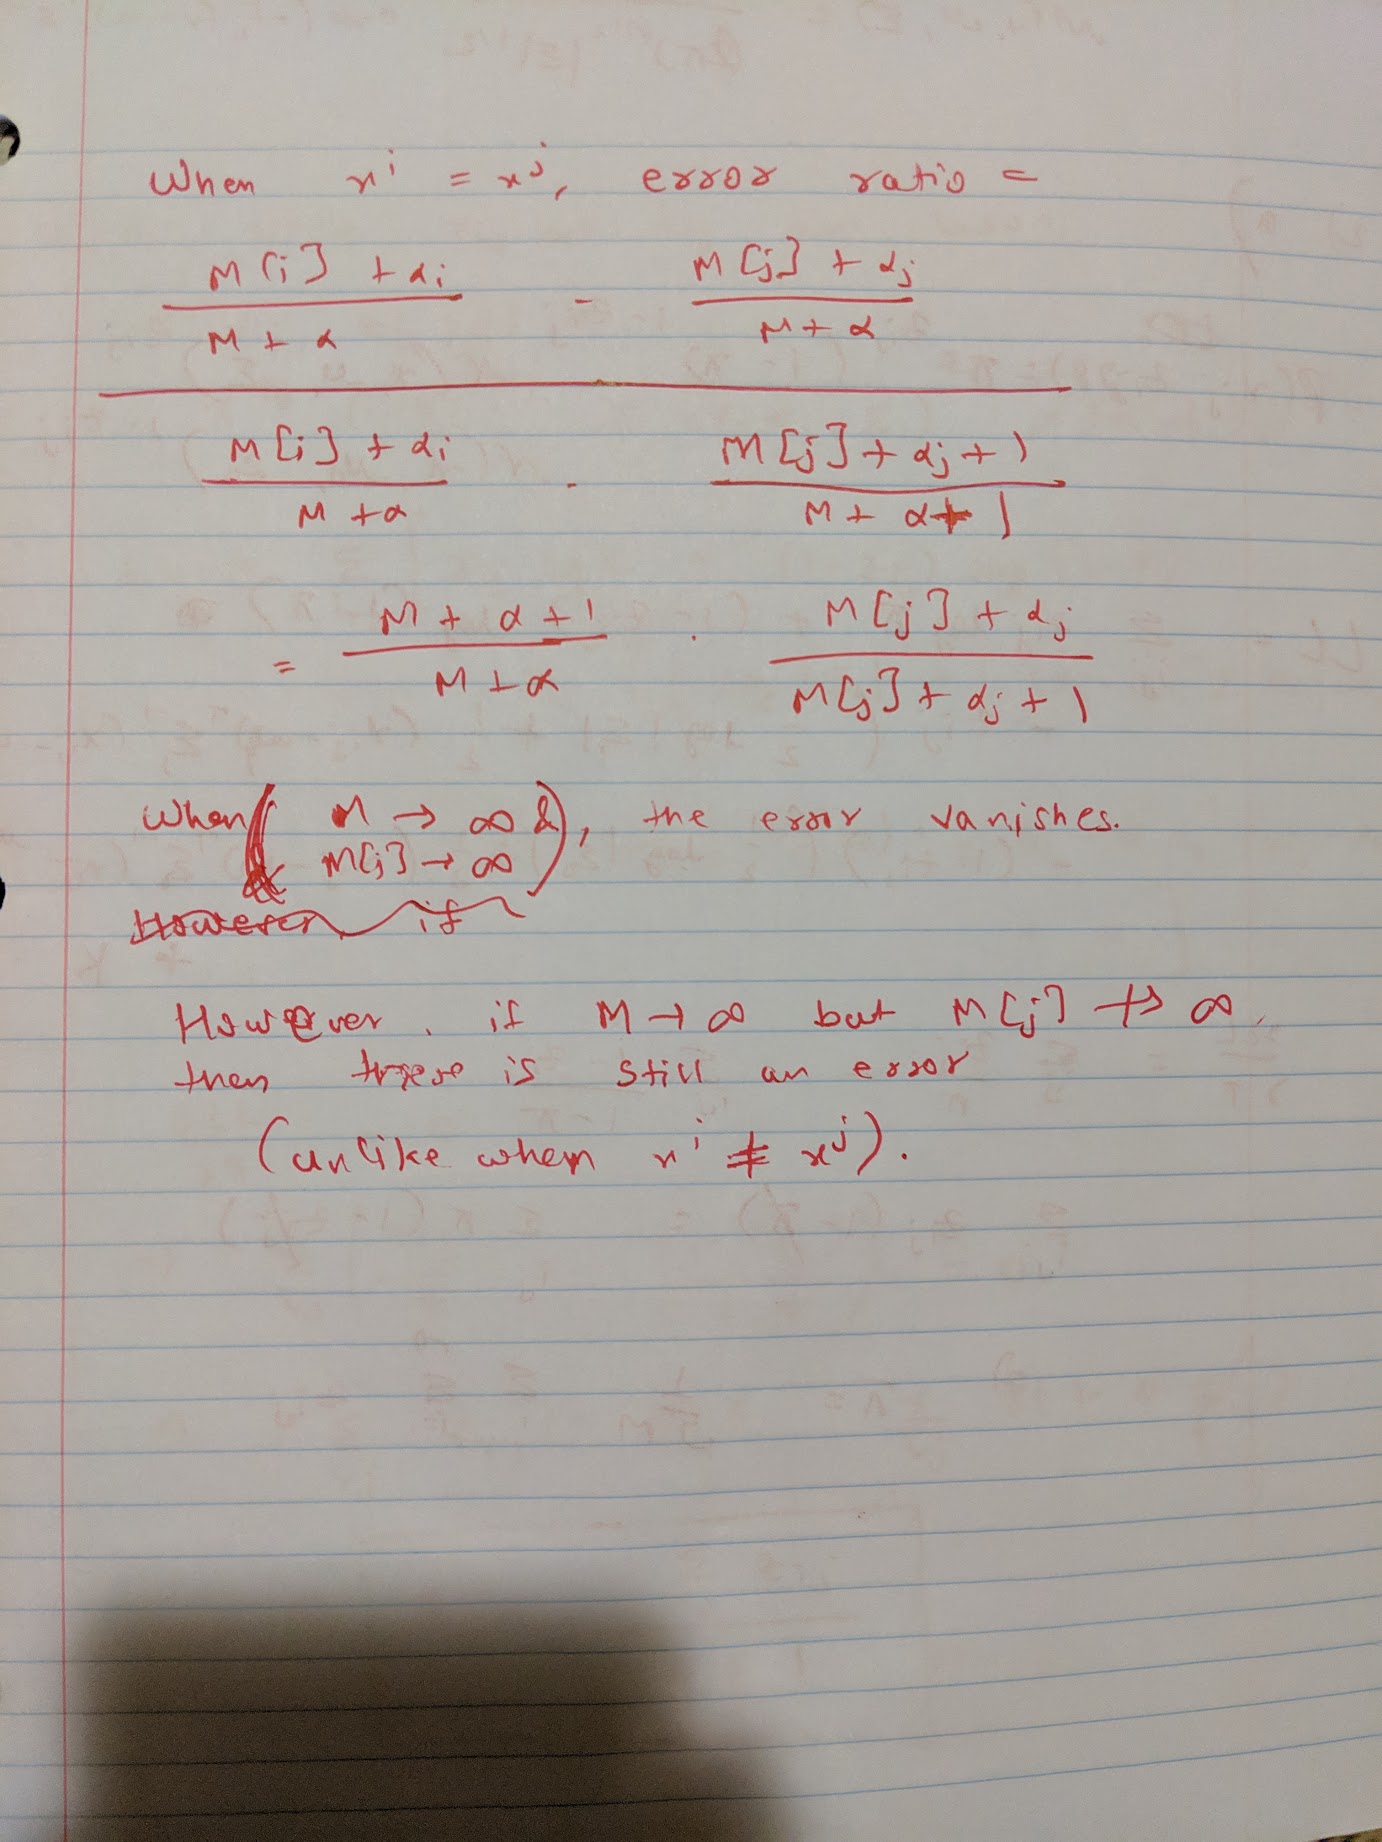 When x^i = x^j, error ratio =
M[i] + α_i / M + α · M[j] + α_j / M + α
M[i] + α_i / M + α · M[j] + α_j + 1 / M + α + 1
= M + α + 1 / M + α · M[j] + α_j / M[j] + α_j + 1
When ( M → ∞ & ), the error vanishes.
M[j] → ∞
However, if
However, if M → ∞ but M[j] ↛ ∞,
then there is still an error
(unlike when x^i ≠ x^j).